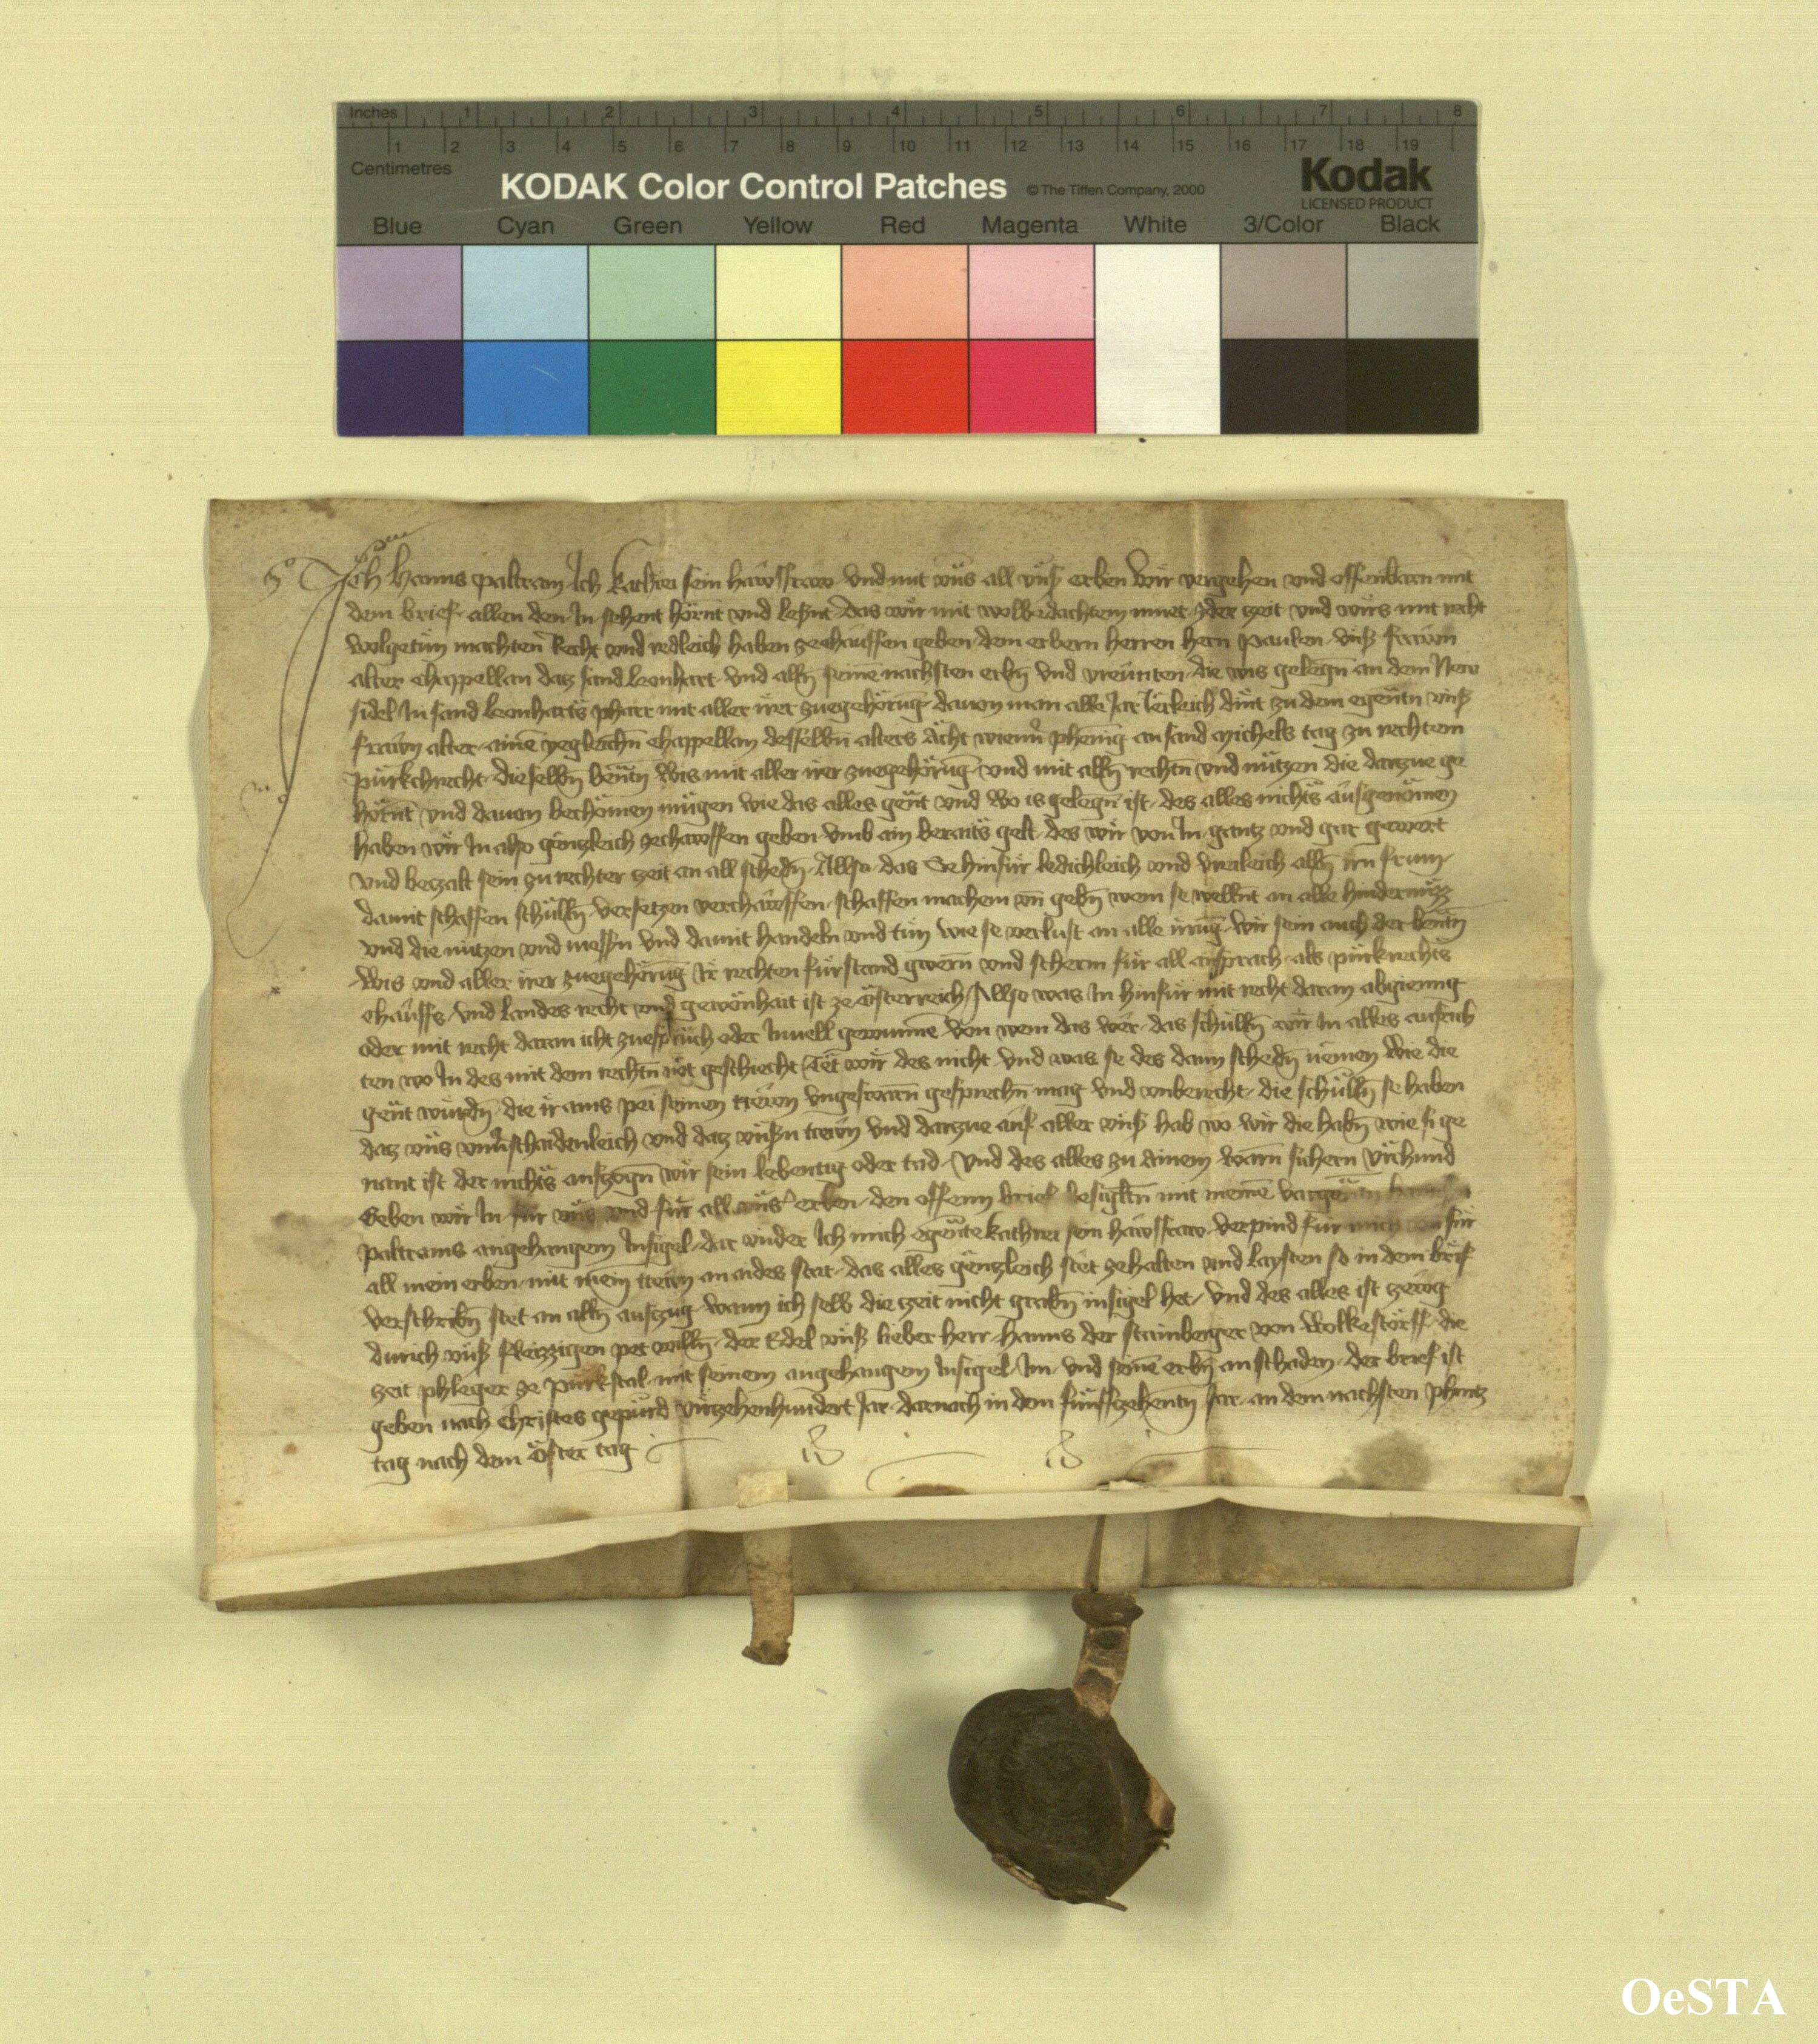 Inches 1 2 3 4 5 6 7 8
1 2 3 4 5 6 7 8 9 10 11 12 13 14 15 16 17 18 19
Centimetres
KODAK Color Control Patches © The Tiffen Company, 2000 Kodak
LICENSED PRODUCT
Blue Cyan Green Yellow Red Magenta White 3/Color Black
Ich Hanns paltram Ich kathrei sein hawsfraw vnd mit vns all vnß erben Wir vergehen vnd offenbarn mit
dem brief allen den In sehent hörnt vnd lesnt das wir mit wolbedachtem muet zder zeit vnd wirs mit recht
wolgetün machten Recht vnd redleich haben zechauffen geben dem erbern herren hern paulen vnß frawn
alter chappellan daz sand leonhart vnd alln̄ seinē nachsten erbn̄ vnd vreunten die wis gelegn̄ an dem New
sidel In sand leonharts pharr mit aller irer zuegehörūg dauon man alle Jar Jerleich dint zu dem egenten vnß
frawn alter ainē yegleichn̄ chappellan desselbn̄ alters Acht wienn̄ phenig an sand michels tag zu rechtem
purkchrecht dieselbn̄ bentn Wis mit aller irer zuegehörūg vnd mit alln̄ rechtn̄ vnd nützen die darzue ge
hörnt vnd dauon bechömen mügen wie das alles gent vnd Wo is gelegn̄ ist des alles nichts ausgenömen
haben wir In also gënzleich zechawffen geben vmb ain beraits gelt des wir von In gantz vnd gar gewert
vnd bezalt sein zu rechter zeit an all schedn̄ Allso das Se hinfür ledichleich vnd vreileich alln̄ irn frum
damit schaffen schulln̄ versetzen verchawffen schaffen machem vn̄ gebn̄ wem se wellnt an alle hindernüzz
vnd die nützen vnd niessn vnd damit handeln vnd tün wie se verlust an alle irrūg wir sein auch der bentn
Wis vnd aller irer zuegehörūg Ir rechten fürstand gwern vnd scherm für all ansprach als purkrechts
chauffs vnd landes recht vnd gewönhait ist ze österreich Allso was In hinfür mit recht daran abgieng
oder mit recht daran icht zuesprüch oder Inuell gewunnē von wem das wer das schulln̄ wir In alles ausrich
ten wo In des mit dem rechtn̄ not geschiecht Tët wir des nicht vnd was se des dann schedn̄ nëmen Wie die
gent wurdn̄ die ir ains pei seinen trewn vngeswarn gesprechn̄ mag vnd vnberecht die schulln̄ se haben
daz vns vnuerschaidenleich vnd daz vnßn trewn vnd darzue auf aller vnß hab wo wir die habn̄ wie si ge
nant ist der nichts auszogn̄ wir sein lebentig oder tad Vnd des alles zu ainem warn sichern Vrchund
Geben wir In für vns vnd für all vns erben den offenn brief besigltn̄ mit meinē
paltrams angehangem Insigel dar vnder Ich mich egente kathrei sein hawsfraw verpind für mich vn̄ für
all mein erben mit mein trewn an aides stat das alles gënzleich stët zehalten vnd laysten so in dem brief
verschribn̄ stet an alln̄ auszug wann ich selb die zeit nicht grabn̄ insigel het Vnd des alles ist zewg
durich vnß fleizzigen pet willn̄ der Edel vnß lieber herr Hanns der stainberger von Wolkestörff die
zeit phleger ze purkstal mit seinem angehangem Insigel Im vnd seinē erbn̄ an schaden der brief ist
geben nach Christes gepurd virzehenhundert Jar darnach in dem fünfzehentn̄ Jar an dem nachsten phintz
tag nach dem Öster tag
OeSTA